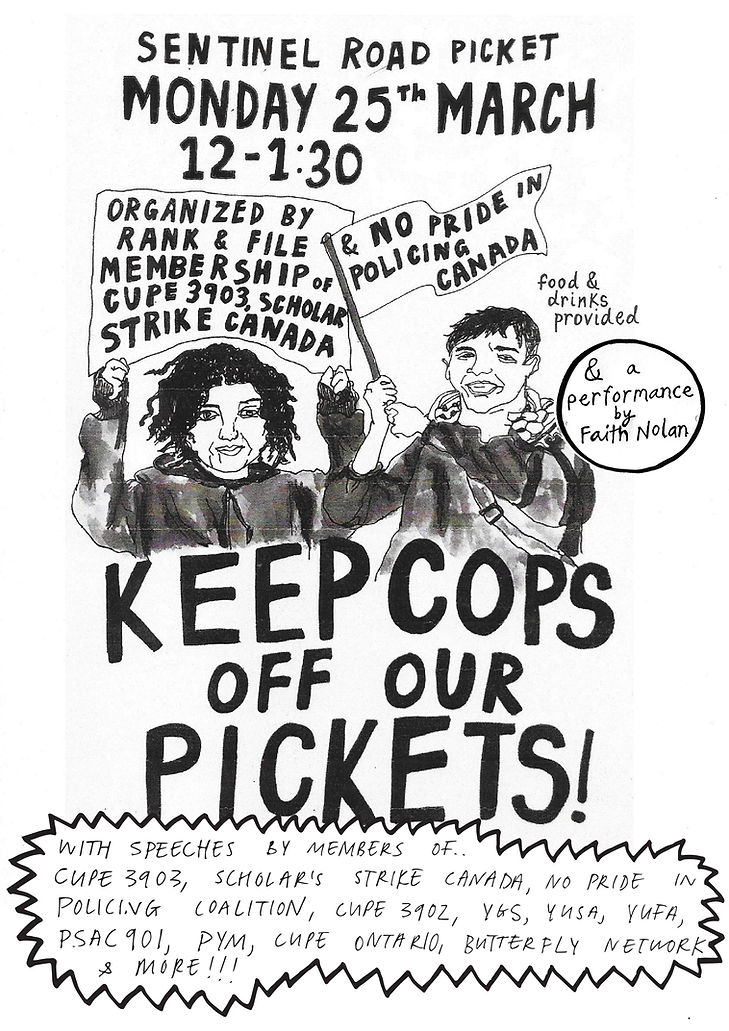 SENTINEL ROAD PICKET
MONDAY 25TH MARCH
12-1:30
ORGANIZED BY
RANK & FILE
MEMBERSHIP OF
CUPE 3903, SCHOLAR
STRIKE CANADA
& NO PRIDE IN
POLICING
CANADA
food &
drinks
provided
& a
performance
by
Faith Nolan
KEEP COPS
OFF OUR
PICKETS!
WITH SPEECHES BY MEMBERS OF..
CUPE 3903, SCHOLAR'S STRIKE CANADA, NO PRIDE IN
POLICING COALITION, CUPE 3902, YGS, YUSA, YUFA,
PSAC 901, PYM, CUPE ONTARIO, BUTTERFLY NETWORK
& MORE!!!